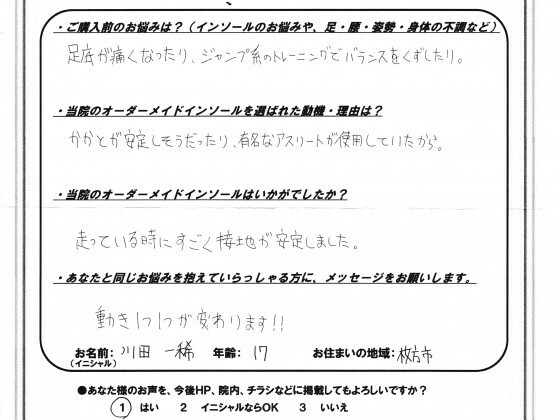 ・ご購入前のお悩みは？（インソールのお悩みや、足・腰・姿勢・身体の不調など）
足底が痛くなったり、ジャンプ系のトレーニングでバランスをくずしたり。
・当院のオーダーメイドインソールを選ばれた動機・理由は？
かかとが安定しそうだったり、有名なアスリートが使用していたから。
・当院のオーダーメイドインソールはいかがでしたか？
走っている時にすごく接地が安定しました。
・あなたと同じお悩みを抱えていらっしゃる方に、メッセージをお願いします。
動き1つ1つが変わります!!
お名前：川田 一稀 年齢：17 お住まいの地域：枚方市
（イニシャル）
●あなた様のお声を、今後HP、院内、チラシなどに掲載してもよろしいですか？
1 はい 2 イニシャルならOK 3 いいえ